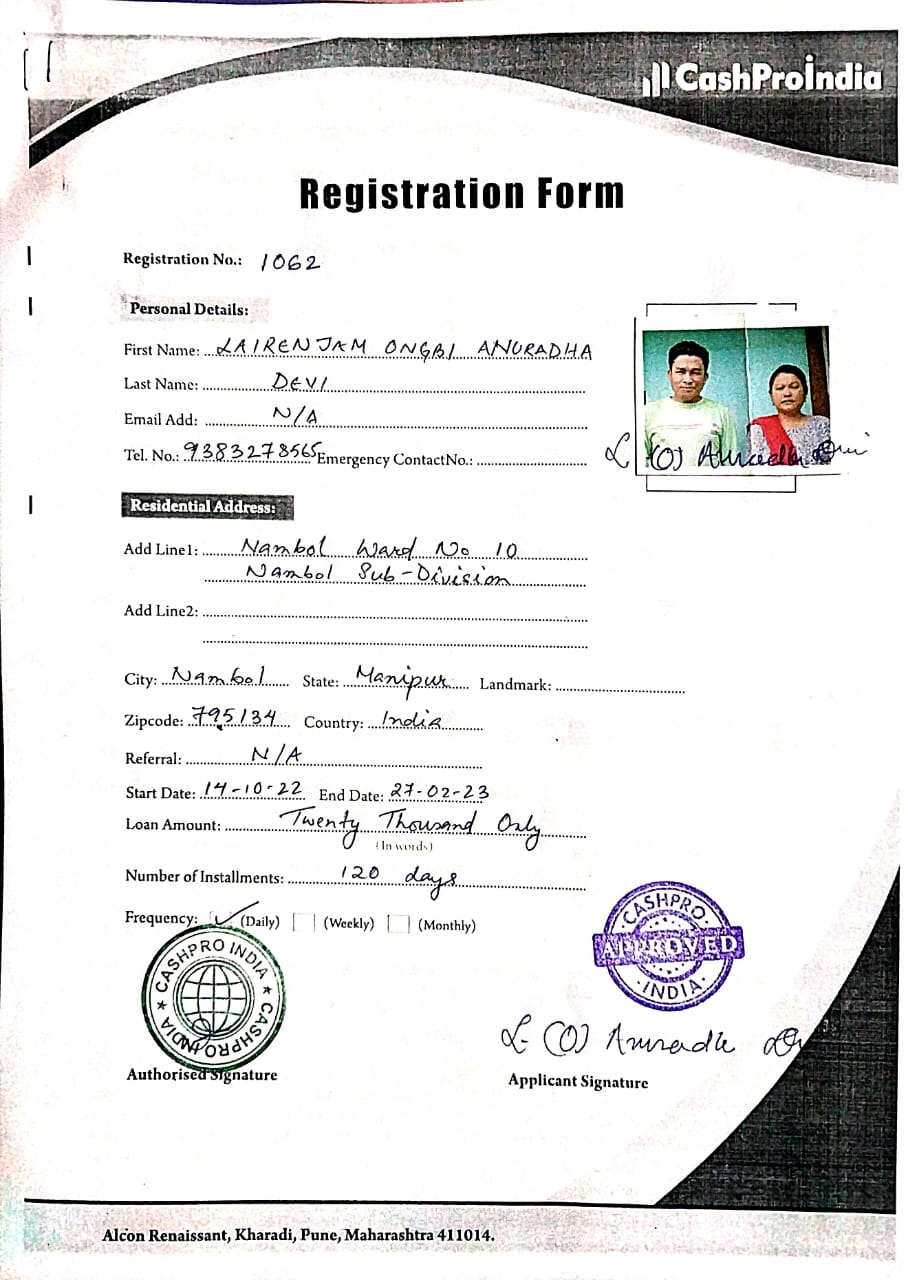 CashProIndia
Registration Form
Registration No.: 1062
Personal Details:
First Name: LAIRENJAM ONGBI ANURADHA
Last Name: DEVI
Email Add: N/A
Tel. No.: 9383278565 Emergency ContactNo.:
L (O) Anuradha Devi
Residential Address:
Add Line1: Nambol Ward No 10
Nambol Sub-Division
Add Line2:
City: Nambol State: Manipur Landmark:
Zipcode: 795134 Country: India
Referral: N/A
Start Date: 14-10-22 End Date: 27-02-23
Loan Amount: Twenty Thousand Only
(In words)
Number of Installments: 120 days
Frequency: ✓ (Daily) (Weekly) (Monthly)
CASHPRO INDIA ★ CASHPRO INDIA ★
CASHPRO
APPROVED
INDIA
L (O) Anuradha Devi
Authorised Signature
Applicant Signature
Alcon Renaissant, Kharadi, Pune, Maharashtra 411014.